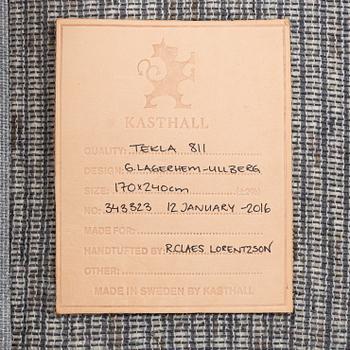 KASTHALL
QUALITY: TEKLA 811
DESIGN: G. LAGERHEM-ULLBERG
SIZE: 170x240cm (±3%)
NO: 343323 12 JANUARY -2016
MADE FOR:
HANDTUFTED BY: R.CLAES LORENTZSON
OTHER:
MADE IN SWEDEN BY KASTHALL